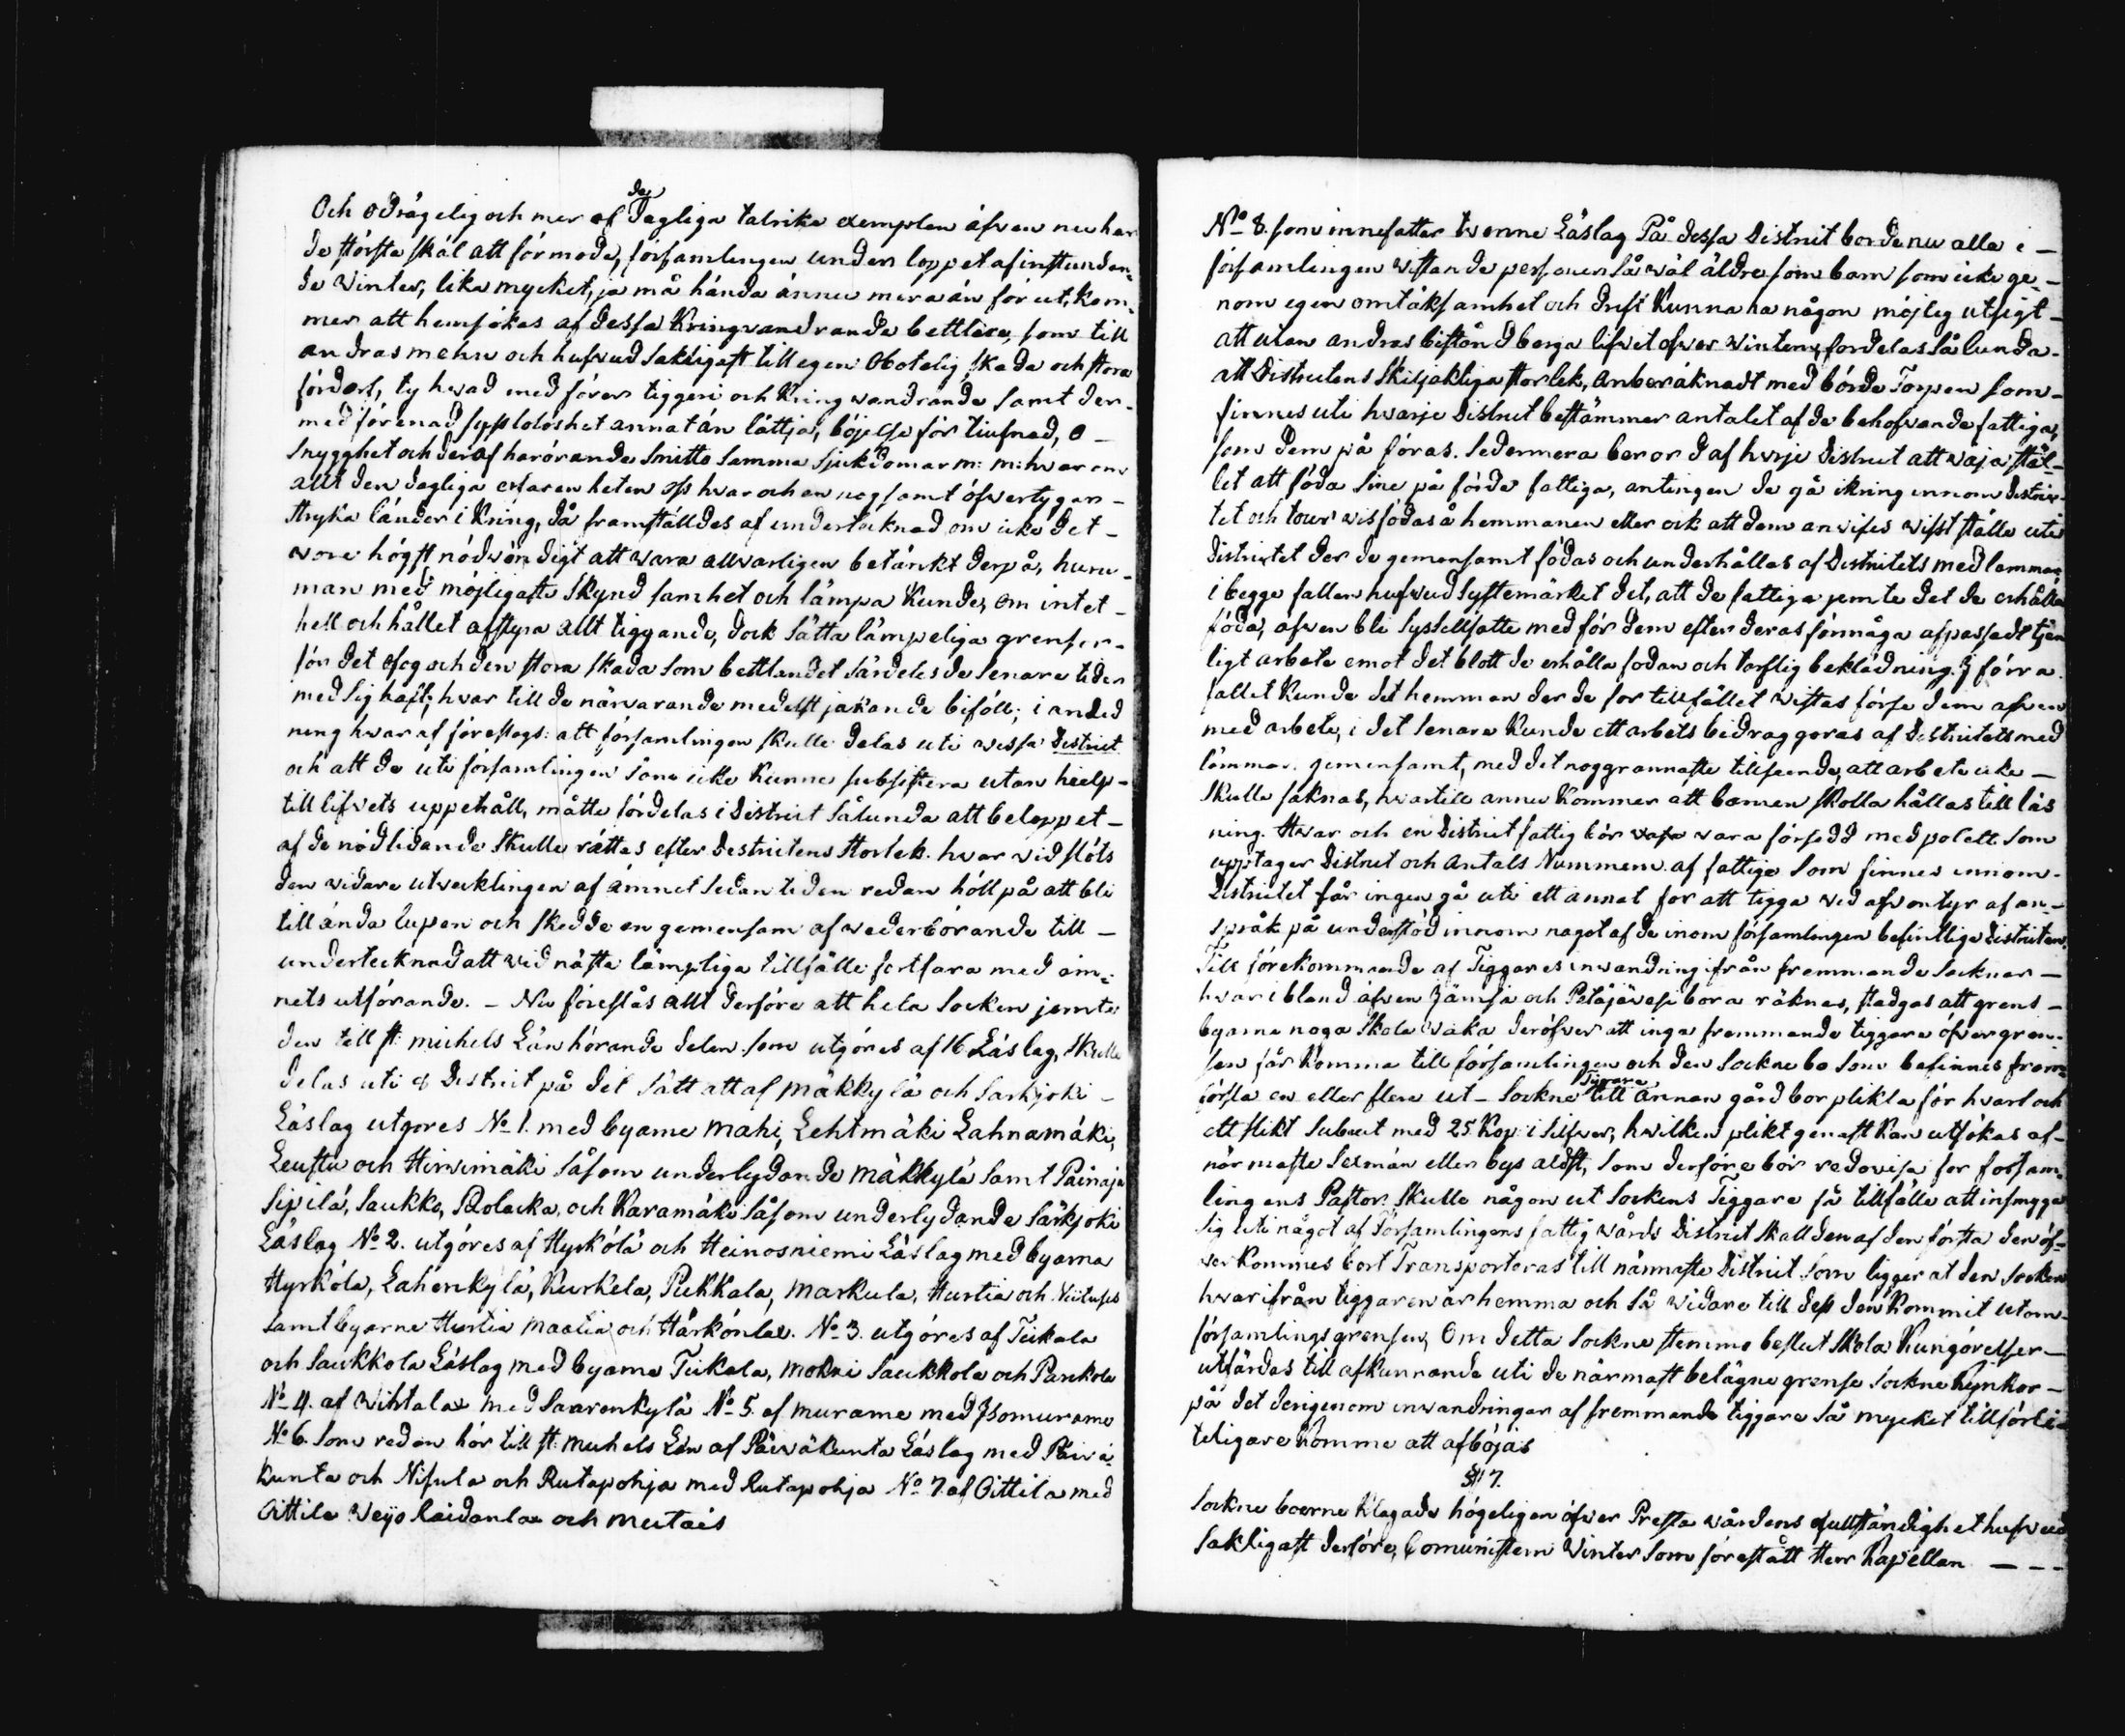 Och odrägelig och mer af de dagliga talrika exemplen äfven nu har
de största skäl att förmoda, församlingen under loppet af instunden-
de Winter, lika mycket, ja må hända ännu mera än för ut, kom-
mer att hemsökas af dessa Kringvandrande bettlare, som till
andras mehn och hufvud sakligast till egen obotelig skada och stora
förderf, ty hvad med förer tiggeri och Kring wandrande samt der-
med förenad sysslolöshet annat än lättja, böjelse för tiufnad, o-
snygghet och deraf harörande smitto samma sjukdomar m: m: hvarom
allt den dagliga erfarenheten oss hvar och en nogsamt öfvertygar-
stryka länder i Kring, då framställdes af undertecknad om icke det-
wore högst nödwändigt att wara allvarligen betänkt derpå, huru-
man med möjligaste skyndsamhet och lämpa kunde, om intet-
hell och hållet afstyra allt tiggande, dock sätta lämpeliga grenser-
för det ofog och den stora skada som bettlandet särdeles de senare tider
med sig haft; hvar till de närvarande medelst jakande biföll; i anled
ning hvar af föreslogs: att församlingen skulle delas uti wissa District
och att de uti församlingen som icke kunna subsistera utan hielp-
till lifvets uppehåll, måtte fördelas i District sålunda att beloppet-
af de nödlidande skulle rättas efter Districtens storlek. hvar vid slöts
den widare utvecklingen af ämnet sedan tiden redan höll på att bli
till ända lupen och skedde en gemensam af wederbörande till-
undertecknad att vid nästa lämpliga tillfälle fortfara med äm-
nets utförande. - Nu föreslås allt derföre att hela Socken jemte
den till St: michels Län hörande delen som utgöres af 16 Läslag, skulle
delas uti 8 District på det sätt att af Mäkkylä och Särkjoki-
Läslag utgöres No 1. med byarne Mahi, Lehtmäki Lahnamäki,
Leustu och Hirvimäki såsom underlydande Mäkkylä samt Painaja
Sipilä, Saukko, Rolacka, och Karamäki såsom underlydande Särkjoki
Läslag No 2. utgöres af Hyrkölä och Heinosniemi Läslag med byarna
Hyrköla, Lahenkylä, Kurkela, Pukkala, Markula, Hurtia och
samt byarne Hurtia Maatia och Härkönlax. No 3. utgöres af Tiikala
och Saukkola Läslag med byarne Tiikala, Mokri Saukkola och Parikola
No 4. af Wihtalax med Saarenkylä No 5. af Murame med Isomurame
No 6. som redan hör till St: Michels Län af Päiväkunta Läslag med Päivä-
kunta och Nisula och Rutapohja med Rutapohja No 7. af Oittila med
Oittila Weijo Raidanlax och Mutais
No 8. som innefatter twenne Läslag På dessa District borde nu alla i-
församlingen wistande personer så wäl äldre som barn som icke ge-
nom egen omtäksamhet och drift kunna ha någon möjlig utsigt-
att utan andras bistånd berga lifvet öfver Wintern, fördelas så lunda-
att Districtens skiljaktiga storlek, anberäknadt med börde Torpen som-
finnes uti hvarje District bestämmer antalet af de behofvande fattiga,
som dem på föras. Sedermera beror d af hvarje District att wälja stäl-
let att föda sine på förda fattiga, antingen de gå ikring innom Distric-
tet och tour vis födas å hemmanen eller ock att dem anvises visst ställe uti
Districtet der de gemensamt födas och underhållas af Districtets medlemmar
i begge fallen hufvudsyftemärket det, att de fattiga jemte det de erhålla
föda, äfven bli sysselsatte med för dem efter deras förmåga afpassadt tjen
ligt arbete emot det blott de erhålla födan och torftig beklädning. I förra
fallet kunde det hemman der de för tillfället wistas förse dem äfven
med arbete, i det senare kunde ett arbets bidrag göras af Districtets med
lemmar gemensamt, med det noggrannaste tillseende, att arbete icke-
skulle saknas, hvartill ännu kommer att barnen skolla hållas till läs
ning. Hvar och en District fattig bör vara försedd med polett som
upptager District och antals Nummern af fattige som finnes innom-
Districtet får ingen gå uti ett annat för att tigga vid äfventyr af an-
språk på understöd innom något af de inom församlingen befintlige Districten.
Till förekommande af Tiggares invandring ifrån fremmande Socknar-
hvar ibland äfven Jämsä och Petäjävesi bora räknas, stadgas att grens-
byarne noga skola waka deröfver att inga fremmande tiggare öfver gren-
sen får komma till församlingen och den Sockne bo som befinnes from
försla en eller flere ut- Sockne Tiggare till annan gård bör plikta för hvart och
ett slikt Subjeut med 25 Kop: i Silfver, hwilken plikt genast kan utsökas af-
närmaste Sexmän eller bys äldst, som derföre bör redovisa för försam-
lingens Pastor. Skulle någon ut Sockens Tiggare få tillfälle att insmyga
sig uti något af församlingens fattig vårds District skall den af den första den öf-
verkommes bort Transporteras till närmaste District som ligger åt den Socken
hwarifrån tiggaren är hemma och så widare till dess den kommit utom-
församlings grensen, Om detta Sockne stemmo beslut skola Kungörelser-
utfärdas till afkunnande uti de närmast belägne grense Sockne kyrkor-
på det derigenom invandringar af fremmande tiggare så mycket tillförli-
teligare komma att afböjas
§ 7.
Sockne boerne klagade högeligen öfver Presta vårdens ofullständighet hufvud
sakligast derföre, Comministern Winter som förestått Herr Kapellan - - -